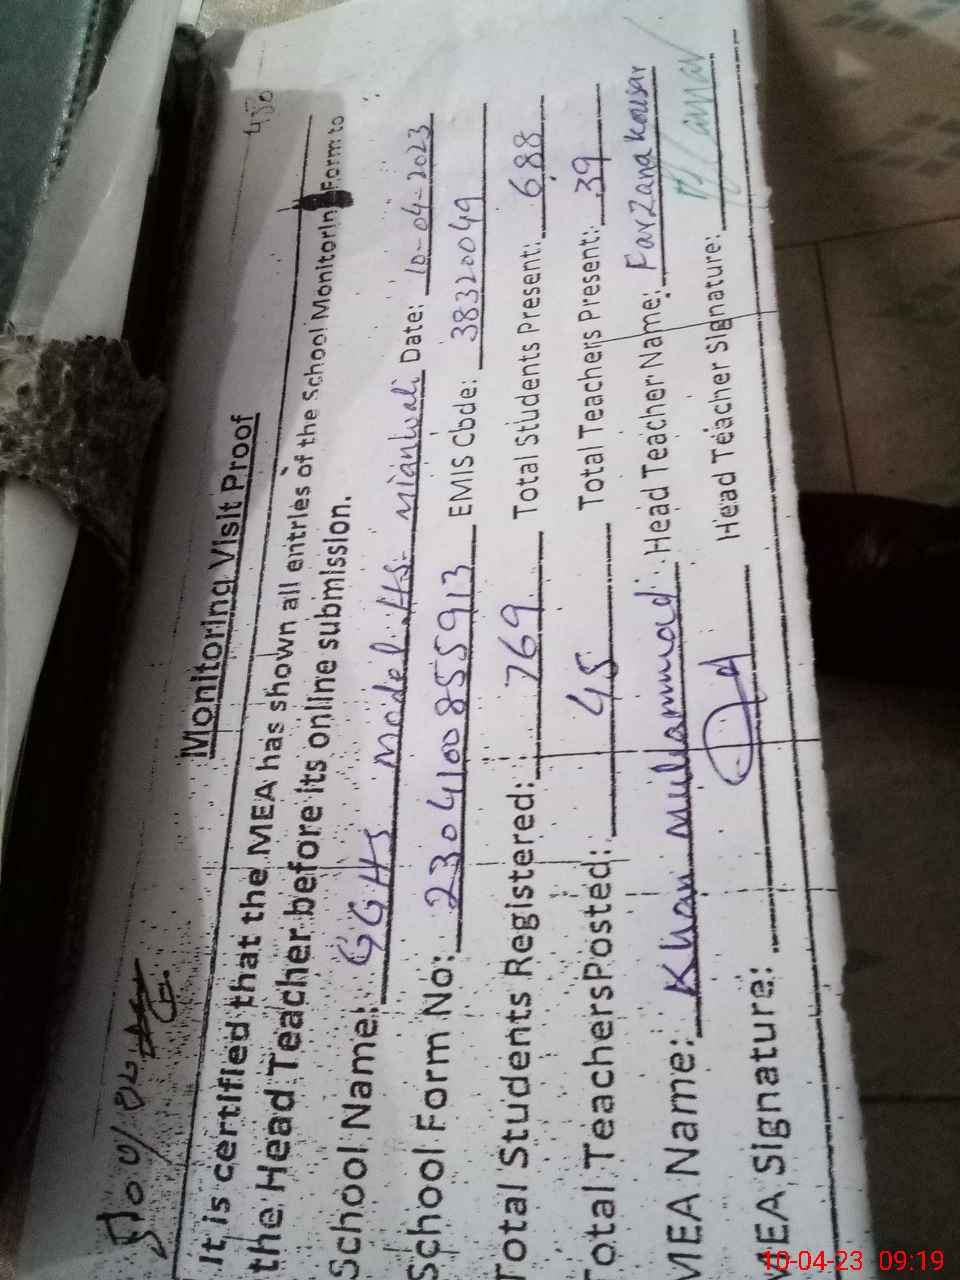 450
Monitoring Visit Proof
It is certified that the MEA has shown all entries of the School Monitoring Form to
the Head Teacher before its online submission.
School Name: GGHS Model HS Mianwali Date: 10-04-2023
School Form No: 2304100855913 EMIS Code: 38320049
Total Students Registered: 769 Total Students Present: 688
Total TeachersPosted: 45 Total Teachers Present: 39
MEA Name: Khan Muhammad Head Teacher Name: Farzana Kousar
MEA Signature: Head Teacher Signature:
10-04-23 09:19